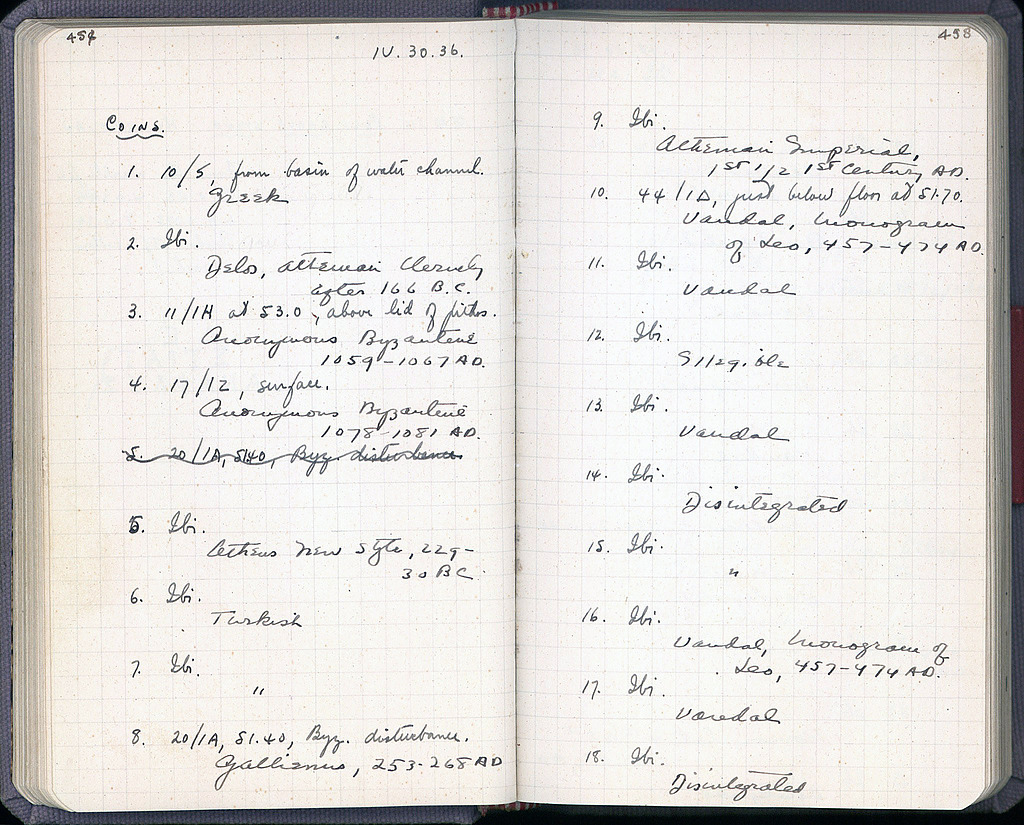 IV. 30. 36.
COINS.
1. 10/5, from basin of water channel.
Greek
2. Ibi.
Delos, Athenian Cleruchy
after 166 B.C.
3. 11/1H at 53.0, above lid of pithos.
Anonymous Byzantine
1059-1067 AD.
4. 17/12, surface.
Anonymous Byzantine
1078-1081 AD.
5. 20/1A, 51.40, Byz. disturbance
5. Ibi.
Athens New Style, 229-
30 BC
6. Ibi.
Turkish
7. Ibi.
"
8. 20/1A, 51.40, Byz. disturbance.
Gallienus, 253-268 AD
458
9. Ibi.
Athenian Imperial,
1st 1/2 1st Century AD.
10. 44/1Δ, just below floor at 51.70.
Vandal, Monogram
of Leo, 457-474 AD.
11. Ibi.
Vandal
12. Ibi.
Illegible
13. Ibi.
Vandal
14. Ibi.
Disintegrated
15. Ibi.
"
16. Ibi.
Vandal, Monogram of
Leo, 457-474 AD.
17. Ibi.
Vandal
18. Ibi.
Disintegrated